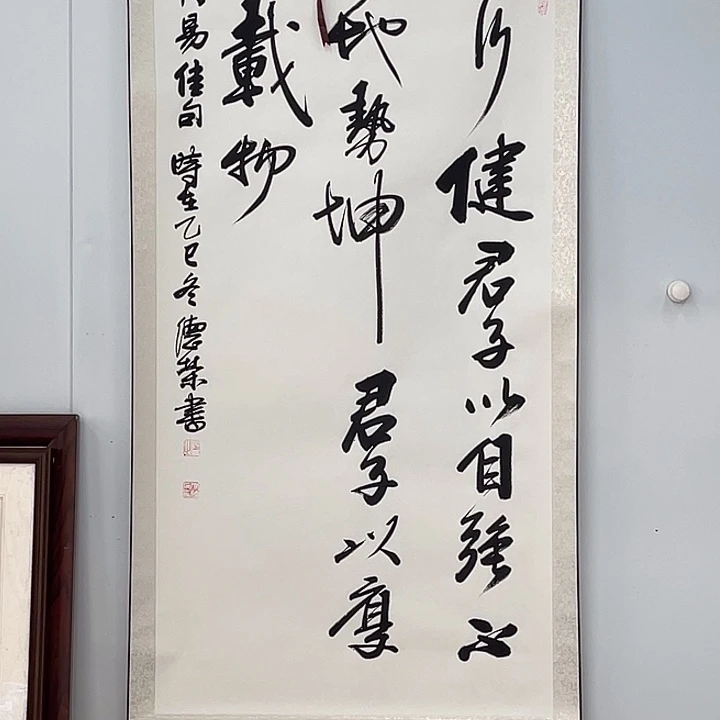 行健君子以自强不
地势坤君子以厚
载物
易佳句時在乙巳冬德荣書